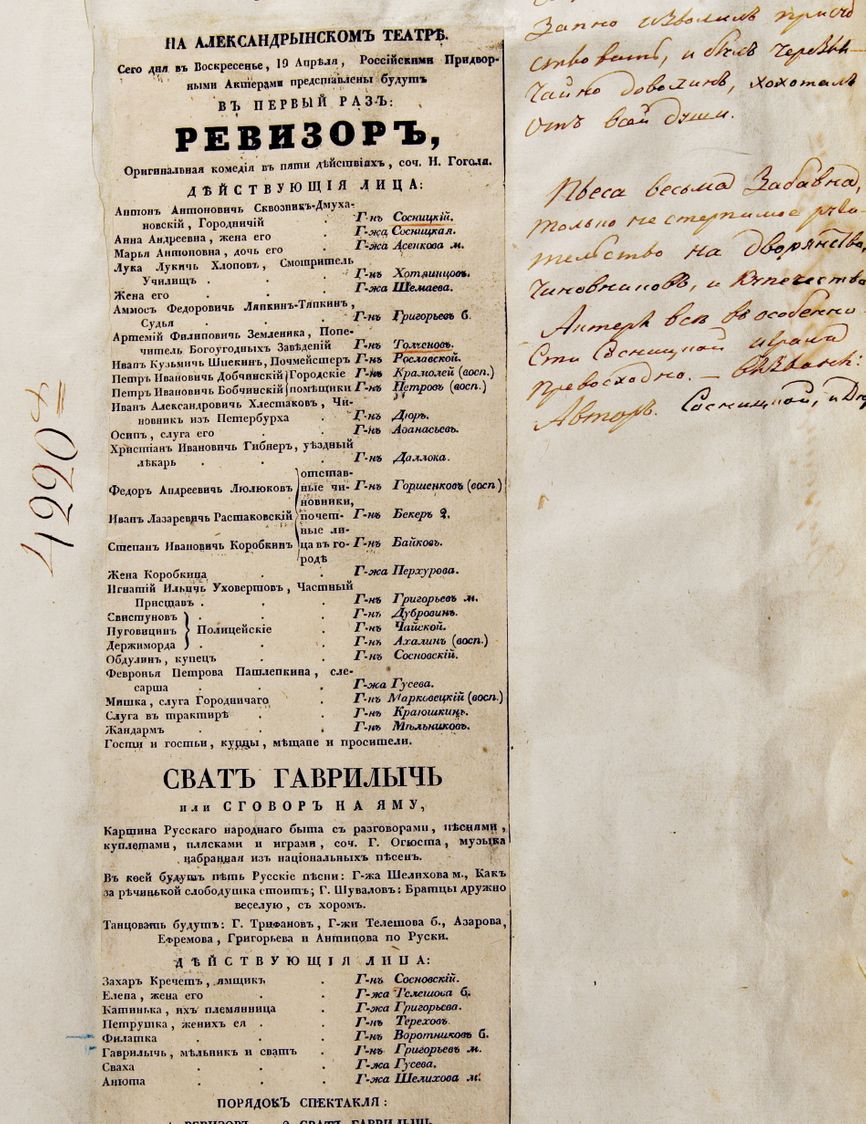 НА АЛЕКСАНДРЫНСКОМЪ ТЕАТРѢ.
Сего дня въ Воскресенье, 19 Апрѣля, Россійскими Придвор-
ными Актерами представлены будутъ
ВЪ ПЕРВЫЙ РАЗЪ:
РЕВИЗОРЪ,
Оригинальная комедія въ пяти дѣйствіяхъ, соч. Н. Гоголя.
ДѢЙСТВУЮЩІЯ ЛИЦА:
Антонъ Антоновичь Сквозникъ-Дмуха-
новскій, Городничій . Г-нъ Сосницкій.
Анна Андреевна, жена его . Г-жа Сосницкая.
Марья Антоновна, дочь его . Г-жа Асенкова м.
Лука Лукичь Хлоповъ, Смотритель
Училищъ . . . Г-нъ Хотяинцовъ.
Жена его . . . Г-жа Шемаева.
Аммосъ Федоровичь Ляпкинъ-Тяпкинъ,
Судья . . . Г-нъ Григорьевъ б.
Артемій Филиповичь Земленика, Попе-
читель Богоугодныхъ Заведеній Г-нъ Толченовъ.
Иванъ Кузьмичь Шпекинъ, Почмейстеръ Г-нъ Рославской.
Петръ Ивановичь Добчинскій Городские Г-нъ Крамолей (восп.)
Петръ Ивановичь Бобчинскій помѣщики Г-нъ Петровъ (восп.)
Иванъ Александровичь Хлестаковъ, Чи-
новникъ изъ Петербурха . Г-нъ Дюръ.
Осипъ, слуга его . . Г-нъ Аѳанасьевъ.
Христіанъ Ивановичь Гибнеръ, уѣздный
лѣкарь . . . Г-нъ Даллока.
отстав-
Федоръ Андреевичь Люлюковъ ные чи- Г-нъ Горшенковъ (восп)
новники,
Иванъ Лазаревичь Растаковскій почет- Г-нъ Бекеръ 2.
ные ли-
Степанъ Ивановичь Коробкинъ ца въ го- Г-нъ Байковъ.
родѣ
Жена Коробкина . . Г-жа Перхурова.
Игнатій Ильичь Уховертовъ, Частный
Приставъ . . . Г-нъ Григорьевъ м.
Свистуновъ . Г-нъ Дубровинъ.
Пуговицинъ Полицейскіе . Г-нъ Чайской.
Держиморда . Г-нъ Ахалинъ (восп.)
Обдулинъ, купецъ . . Г-нъ Сосновскій.
Февронья Петрова Пашлепкина, сле-
сарша . . . Г-жа Гусева.
Мишка, слуга Городничаго . Г-нъ Марковецкій (восп.)
Слуга въ трактирѣ . . Г-нъ Краюшкинъ.
Жандармъ . . . Г-нъ Мѣльниковъ.
Гости и гостьи, купцы, мѣщане и просители.
СВАТЪ ГАВРИЛЫЧЬ
или СГОВОРЪ НА ЯМУ,
Картина Русскаго народнаго быта съ разговорами, пѣснями,
куплетами, плясками и играми, соч. Г. Огюста, музыка
набранная изъ національныхъ пѣсенъ.
Въ коей будутъ пѣть Русскіе пѣсни: Г-жа Шелихова м., Какъ
за рѣчинькой слободушка стоитъ; Г. Шуваловъ: Братцы дружно
веселую, съ хоромъ.
Танцовать будутъ: Г. Трифановъ, Г-жи Телешова б., Азарова,
Ефремова, Григорьева и Антипова по Руски.
ДѢЙСТВУЮЩІЯ ЛИЦА:
Захаръ Кречетъ, ямщикъ . Г-нъ Сосновскій.
Елена, жена его . . Г-жа Телешова б.
Катинька, ихъ племянница . Г-жа Григорьева.
Петрушка, женихъ ея . . Г-нъ Тереховъ.
Филатка . . . Г-нъ Воротниковъ б.
Гаврилычь, мѣльникъ и сватъ . Г-нъ Григорьевъ м.
Сваха . . . Г-жа Гусева.
Анюта . . . Г-жа Шелихова м.
ПОРЯДОКЪ СПЕКТАКЛЯ:
1. РЕВИЗОРЪ. 2. СВАТЪ ГАВРИЛЫЧЬ.
4220
запно изволилъ присуд
ствовать, и былъ чрезвы-
чайно доволинъ, хохоталъ
отъ всей души.
Пьеса весьма забавна
только не стерпимое руга
тельство на дворянство,
чиновниковъ, и купечество
Актеръ всѣ въ особенно
сти Сосницкой играли
превосходно. – Вызваны:
Авторъ. Сосницкой, и Дю